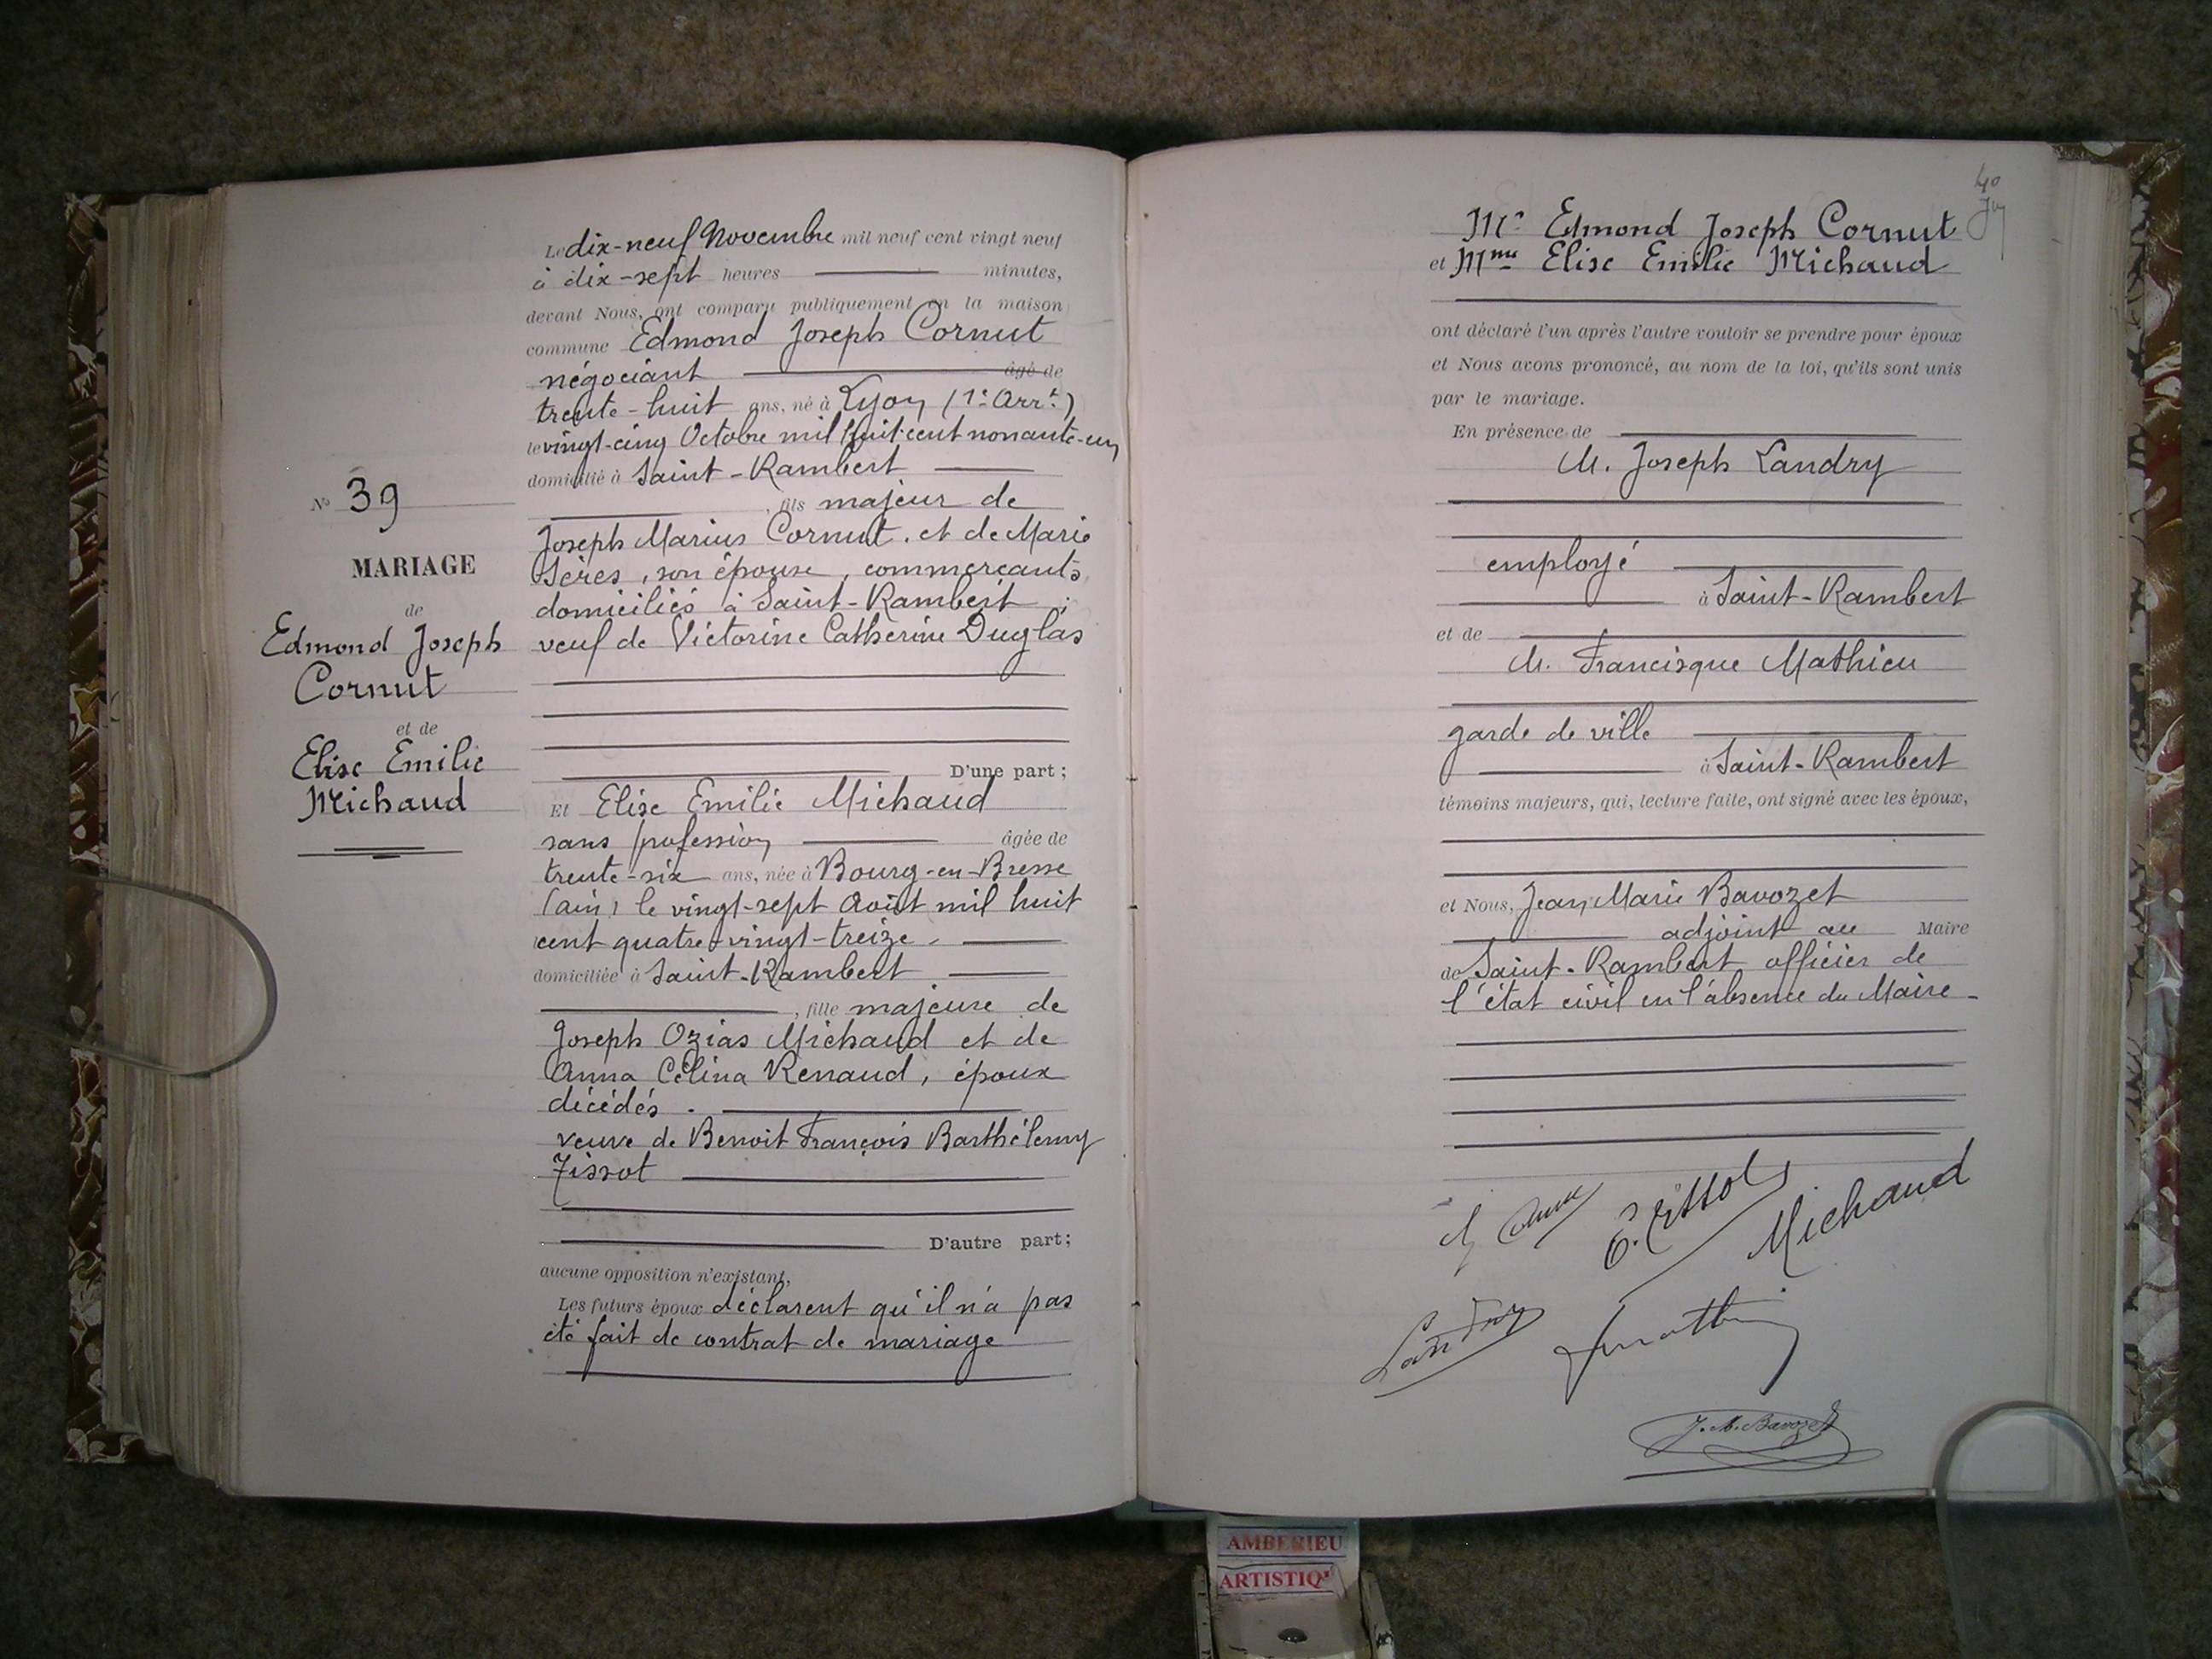 N° 39
MARIAGE
de
Edmond Joseph
Cornut
et de
Elise Emilie
Michaud
Le dix-neuf Novembre mil neuf cent vingt neuf
à dix-sept heures minutes,
devant Nous, ont comparu publiquement en la maison
commune Edmond Joseph Cornut
négociant âgé de
trente-huit ans, né à Lyon (1er Arrt)
le vingt-cinq Octobre mil huit-cent nonante-un
domicilié à Saint-Rambert
, fils majeur de
Joseph Marius Cornut, et de Marie
son épouse, commerçants
domiciliés à Saint-Rambert ;
veuf de Victorine Catherine Duglas
D'une part ;
Et Elise Emilie Michaud
sans profession âgée de
trente-six ans, née à Bourg-en-Bresse
(ain) le vingt-sept Août mil huit
cent quatre-vingt-treize.
domiciliée à Saint-Rambert
, fille majeure de
Joseph Ozias Michaud et de
Anna Célina Renaud, époux
décédés.
veuve de Benoit François Barthélemy
Tissot
D'autre part ;
aucune opposition n'existant,
Les futurs époux déclarent qu'il n'a pas
été fait de contrat de mariage
40
Mr Edmond Joseph Cornut
et Mme Elise Emilie Michaud
ont déclaré l'un après l'autre vouloir se prendre pour époux
et Nous avons prononcé, au nom de la loi, qu'ils sont unis
par le mariage.
En présence de
M. Joseph Landry
employé
à Saint-Rambert
et de
M. Francisque Mathieu
garde de ville
à Saint-Rambert
témoins majeurs, qui, lecture faite, ont signé avec les époux,
et Nous, Jean Marie Bavozet
adjoint au Maire
de Saint-Rambert officier de
l'état civil en l'absence du Maire -
E. Tissot
Michaud
Landry
J. M. Bavozet
AMBERIEU
ARTISTIQ